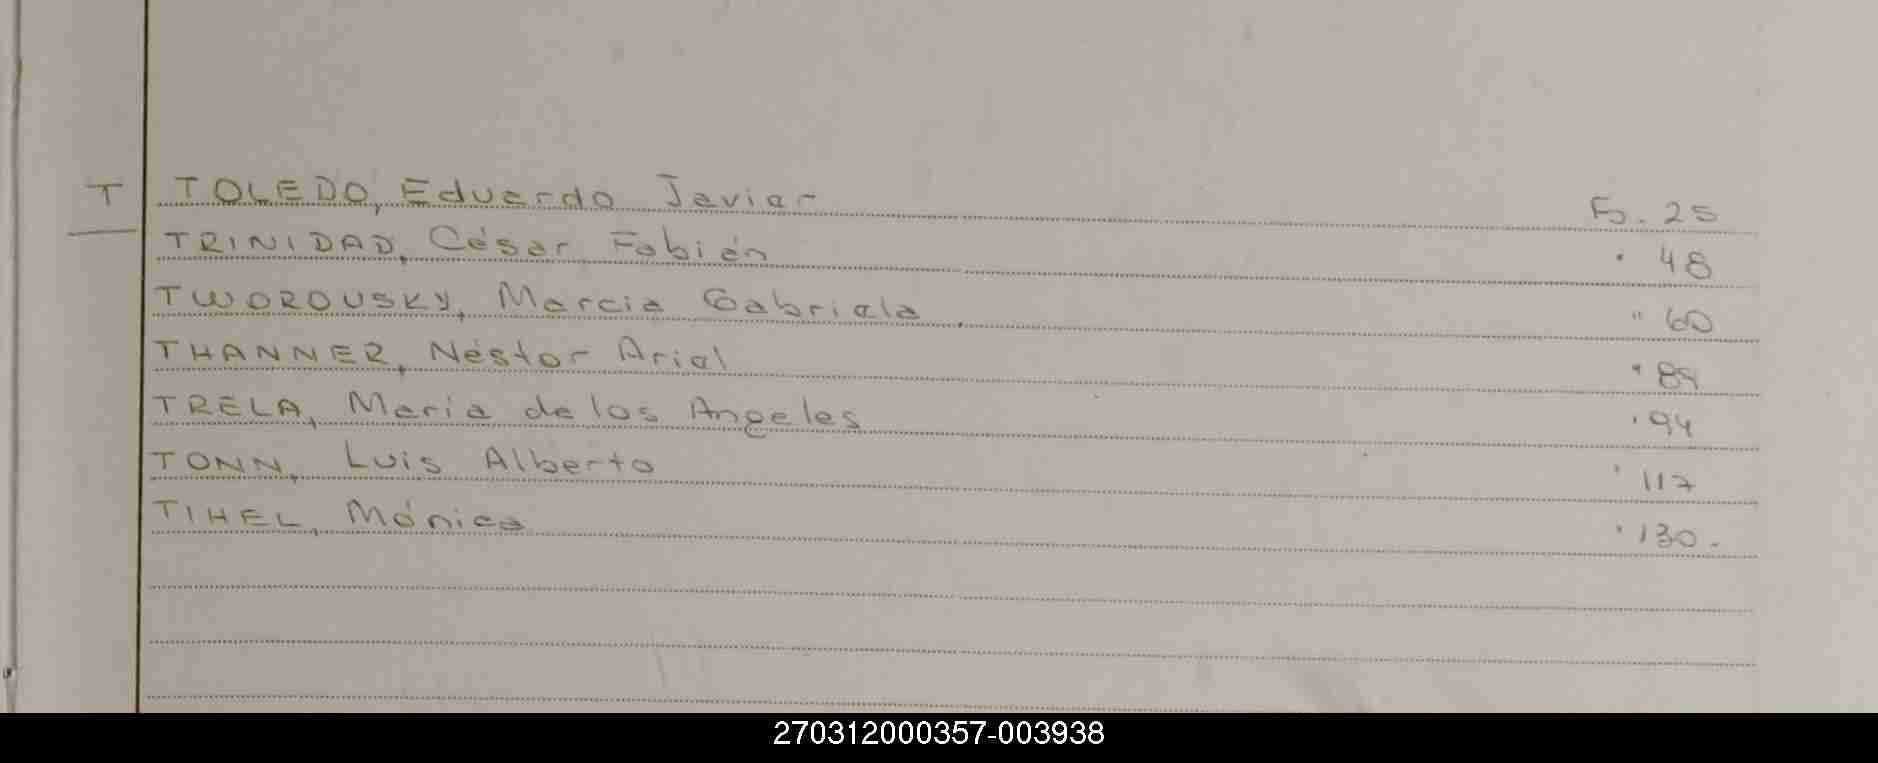 T TOLEDO, Eduardo Javier Fs. 25
TRINIDAD, César Fabián " 48
TWOROUSKY, Marcia Gabriela. " 60
THANNER, Néstor Ariel " 89
TRELA, María de los Angeles " 94
TONN, Luis Alberto " 117
TIHEL, Mónica " 130.-
270312000357-003938